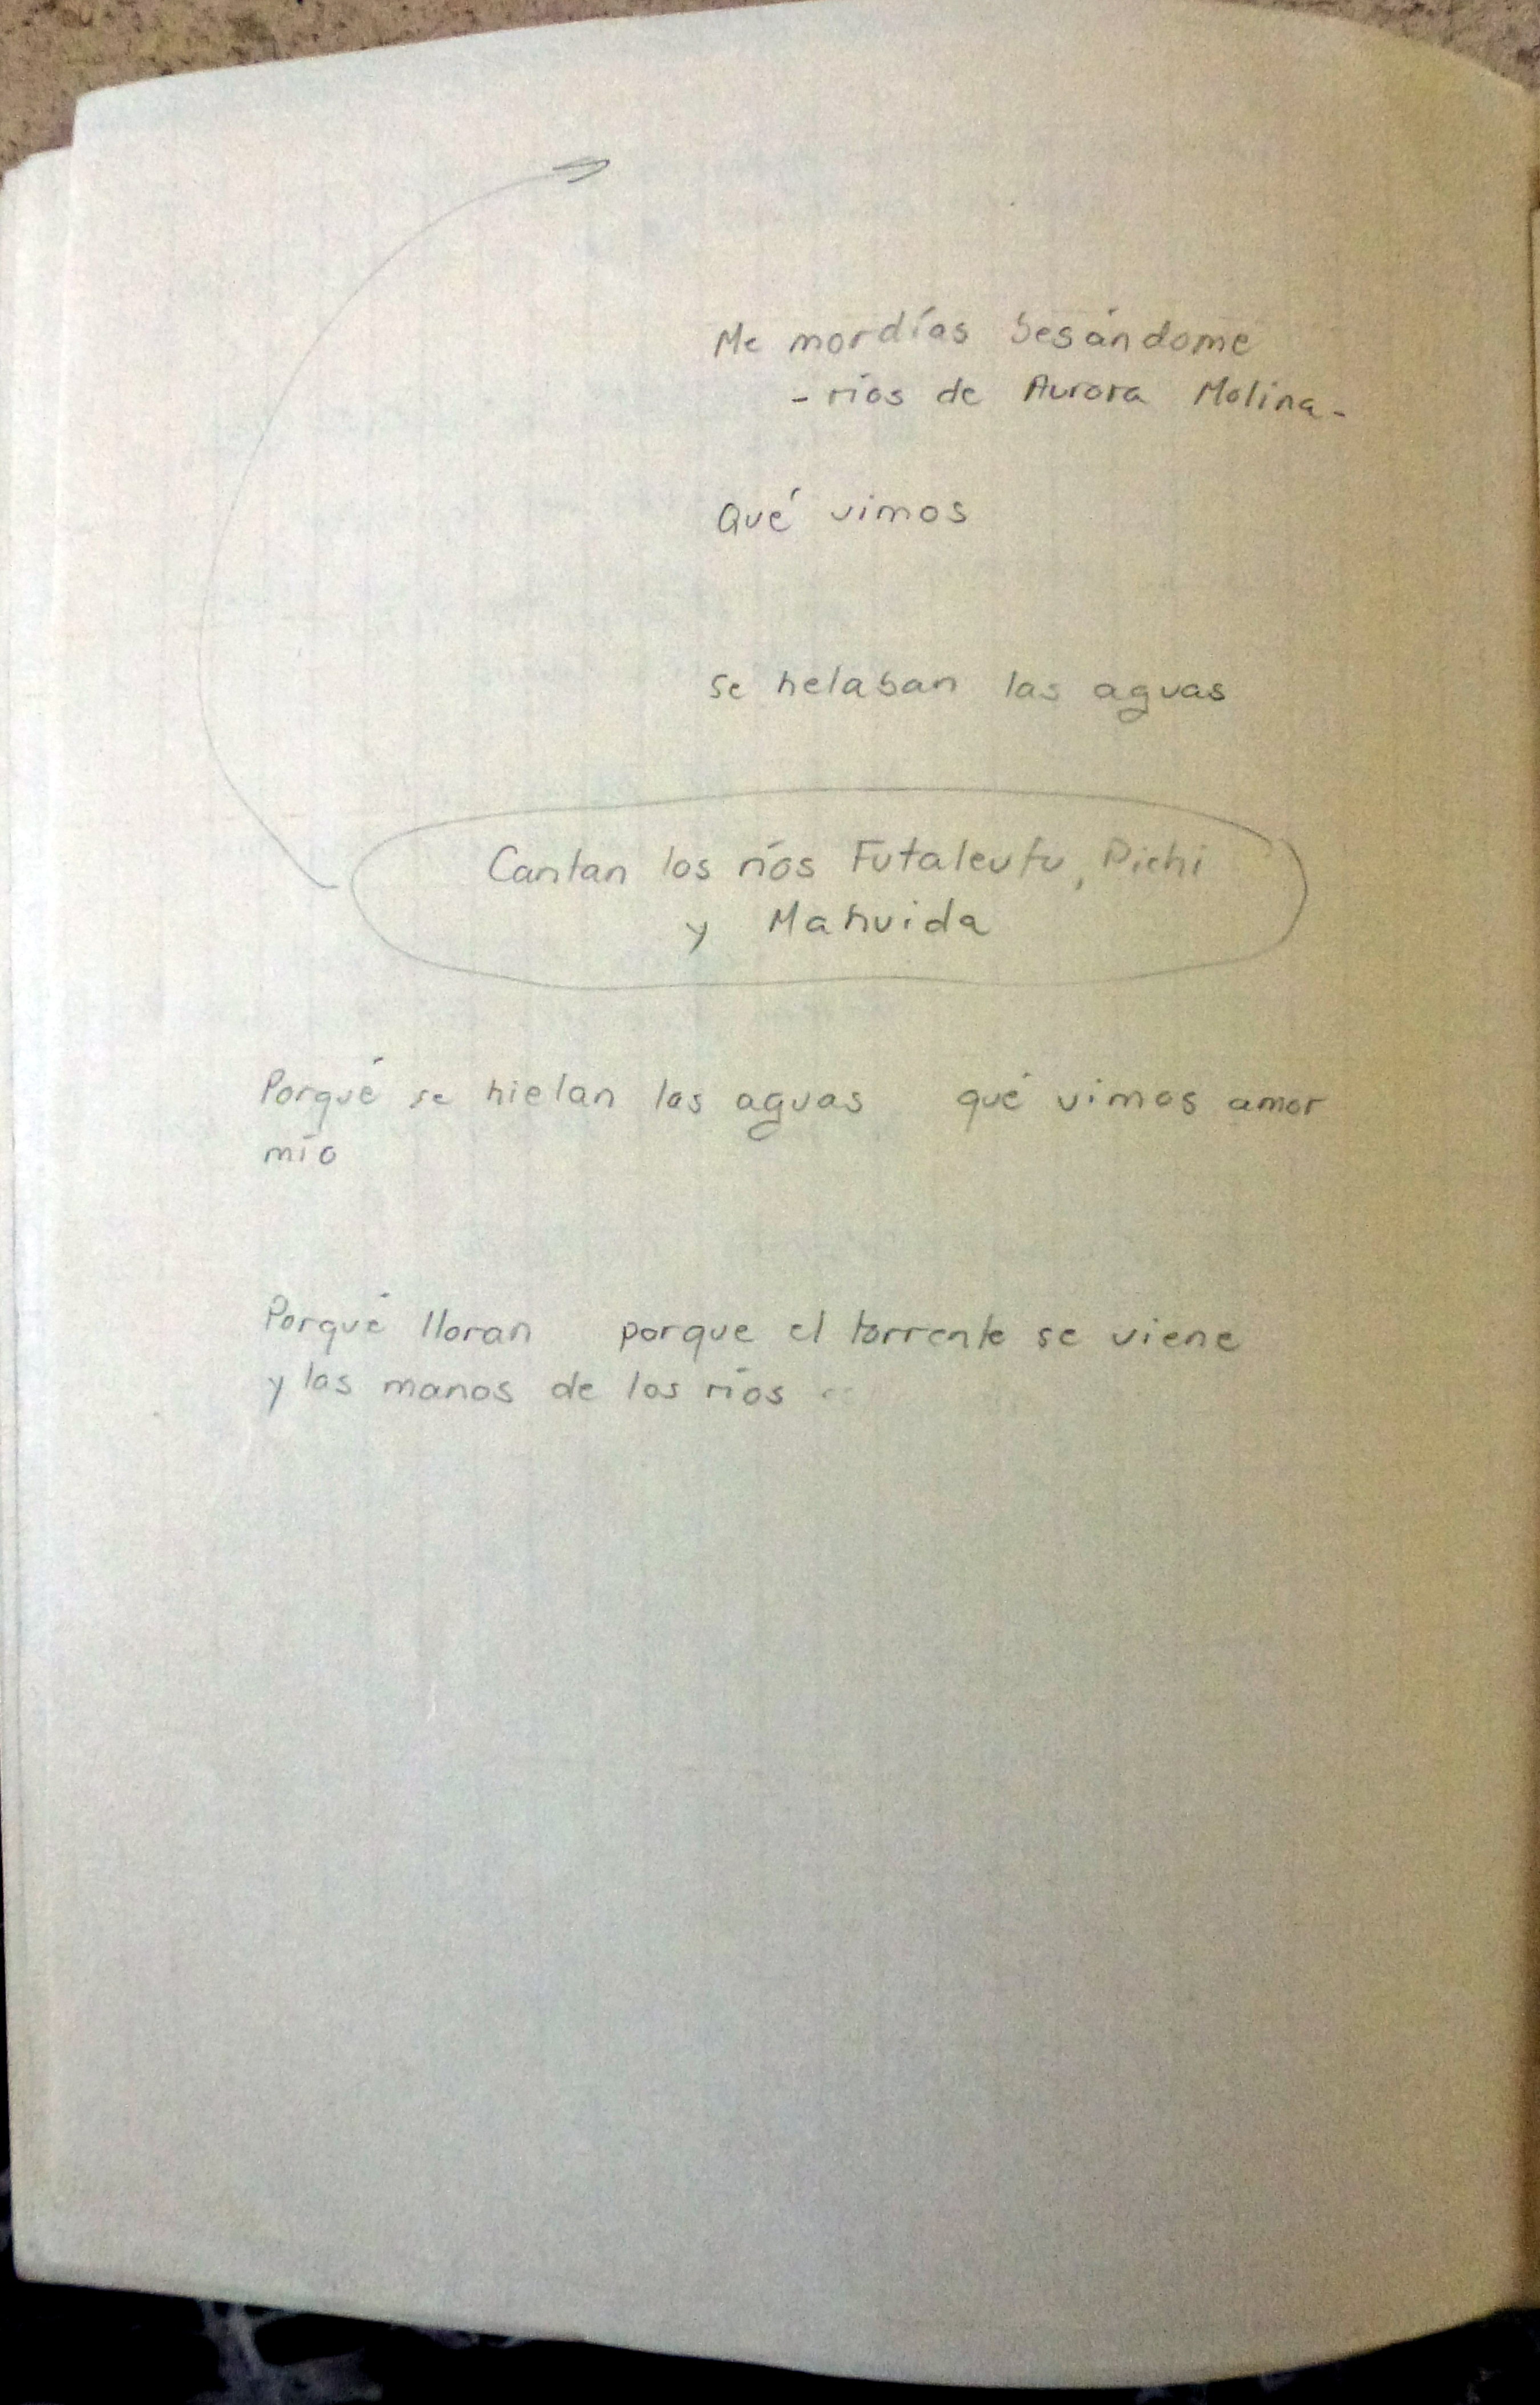 Me mordías besándome
- ríos de Aurora Molina -
Qué vimos
se helaban las aguas
Cantan los ríos Futaleufu, Pichi
y Mahuida
Porqué se hielan las aguas qué vimos amor
mío
Porqué lloran porque el torrente se viene
y las manos de los ríos